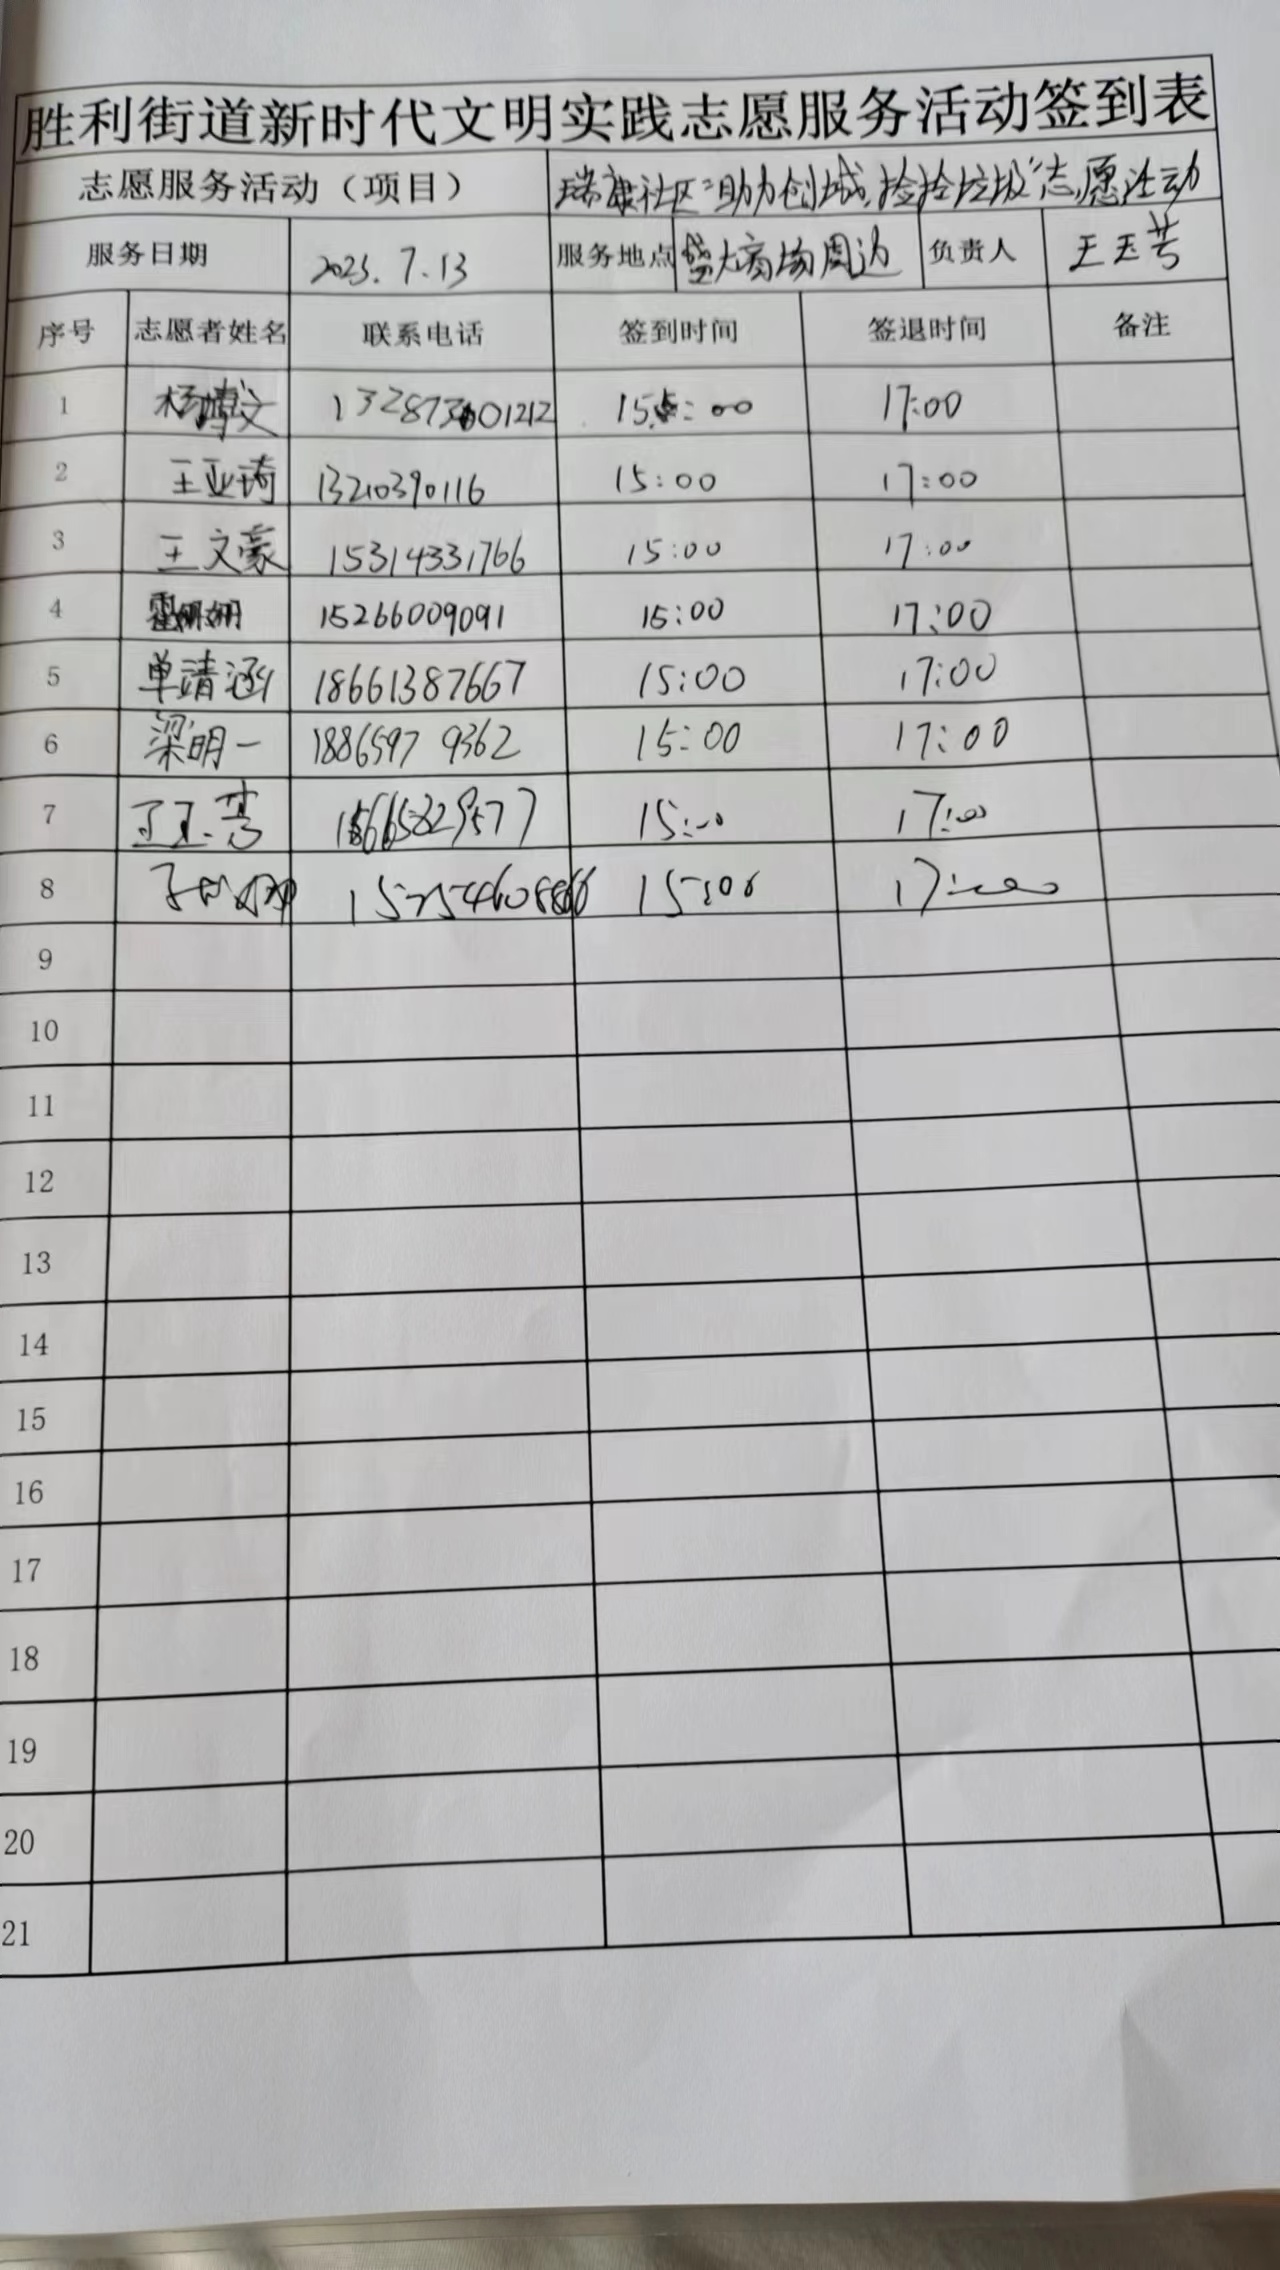 胜利街道新时代文明实践志愿服务活动签到表
志愿服务活动（项目） 瑞康社区“助力创城,捡捡垃圾”志愿活动
服务日期 2023.7.13 服务地点 盛大商场周边 负责人 王玉芳
序号 志愿者姓名 联系电话 签到时间 签退时间 备注
1 杨博文 17:00
2 王亚琦 13210390116 15:00 17:00
3 王文豪 15314331766 15:00 17:00
4 15266009091 15:00 17:00
5 单靖涵 18661387667 15:00 17:00
6 梁明一 18865979362 15:00 17:00
7 15:00 17:00
8 15:00 17:00
9
10
11
12
13
14
15
16
17
18
19
20
21